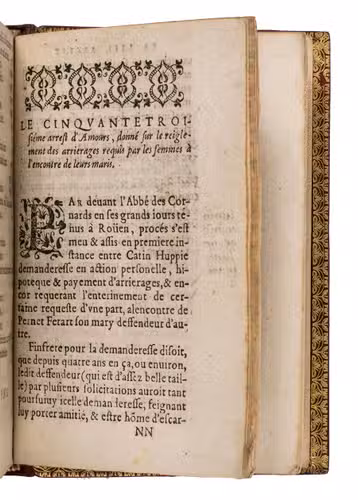 LE CINQVANTETROI-
siéme arrest d'Amours, donné sur le reigle-
ment des arrierages requis par les femmes à
l'encontre de leurs maris.
PAR devant l'Abbé des Cor-
nards en ses grands iours te-
nus à Roüen, procés s'est
meu & assis en premiere in-
stance entre Catin Huppie
demanderesse en action personelle, hi-
poteque & payement d'arrierages, & en-
cor requerant l'enterinement de cer-
taine requeste d'vne part, alencontre de
Pernet Fetart son mary deffendeur d'au-
tre.
Finfrete pour la demanderesse disoit,
que depuis quatre ans en ça, ou environ,
ledit deffendeur (qui est d'assez belle tail-
le) par plusieurs solicitations auroit tant
poursuiuy icelle demanderesse, feignant
luy porter amitié, & estre hôme d'escar-
NN